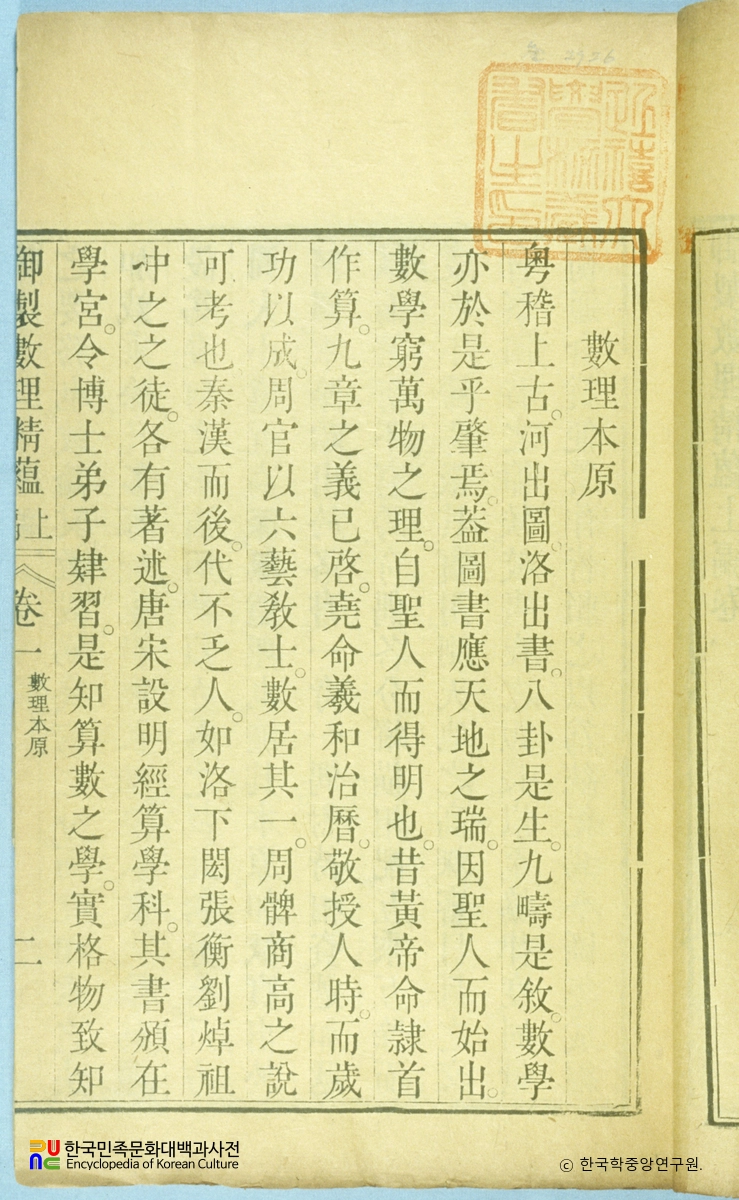 數理本原
粵稽上古。河出圖。洛出書。八卦是生。九疇是敘。數學
亦於是乎肇焉。葢圖書應天地之瑞。因聖人而始出。
數學窮萬物之理。自聖人而得明也。昔黃帝命隸首
作算。九章之義已啓。堯命羲和治曆。敬授人時。而歲
功以成。周官以六藝敎士。數居其一。周髀商高之說
可考也秦漢而後。代不乏人。如洛下閎張衡劉焯祖
冲之之徒。各有著述。唐宋設明經算學科。其書頒在
學宮。令博士弟子肄習。是知算數之學。實格物致知
御製數理精蘊
上編
卷一
數理本原
二
한국민족문화대백과사전
Encyclopedia of Korean Culture
© 한국학중앙연구원.